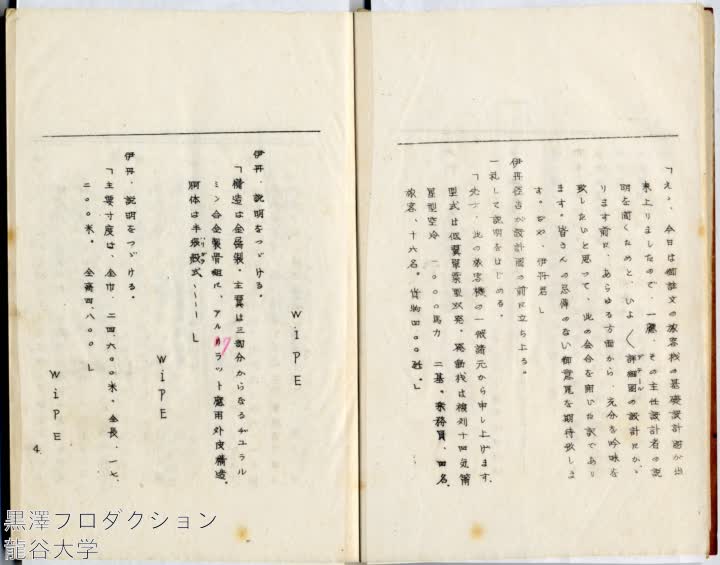 「えゝ、今日は御註文の旅客機の基礎設計図が出
来上りましたので、一應、その主任設計者の説
明を聞くためと、ひよ〱詳細図の設計にかゝ
デテール
ります前に、あらゆる方面から、充分な吟味を
致したいと思つて、此の会合を開いた訳であり
ます。皆さんの忌憚のない御意見を期待致しま
す。ぢや、伊丹君」
伊丹俊吉が設計図の前に立ち上る。
一礼して説明をはじめる。
「先づ、此の旅客機の一般諸元から申し上げます。
型式は低翼単葉型双発。発動機は複列十四気筒
星型空冷 一〇〇〇馬力 二基。乗務員、四名。
旅客、十六名。貨物四〇〇瓩。」
WIPE
伊丹、説明をつゞける。
「構造は全金属製。主翼は三部分からなるヂユラル
ミン合金製骨組に、アルクラット應用外皮構造。
胴体は半張殻式、〜〜〜」
WIPE
伊丹、説明をつゞける。
「主要寸度は、全巾、二四.六〇〇米。全長、一七.
二〇〇米。全高四.八〇〇」
WIPE
4.
黒澤プロダクション
龍谷大学